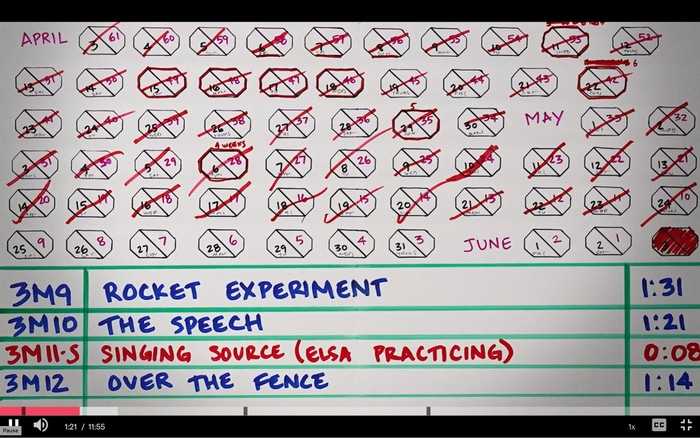 APRIL 3 61 4 60 5 59 6 58 7 57 8 56 9 55 10 54 11 53 12 52
13 51 14 50 15 49 16 48 17 47 18 46 19 45 20 44 21 43 22 42
6
23 41 24 40 25 39 26 38 27 37 28 36 29 35 30 34 MAY 1 33 32
5
3 31 4 30 5 29 6 28 7 27 8 26 9 25 10 24 11 23 12 22 13 21
4 WEEKS
14 20 15 19 16 18 17 17 18 16 19 15 20 14 21 13 22 12 23 11 24 10
25 9 26 8 27 7 28 6 29 5 30 4 31 3 JUNE 1 2 2 1
3M9 ROCKET EXPERIMENT 1:31
3M10 THE SPEECH 1:21
3M11-S SINGING SOURCE (ELSA PRACTICING) 0:08
3M12 OVER THE FENCE 1:14
Pause 1:21 / 11:55 1x CC